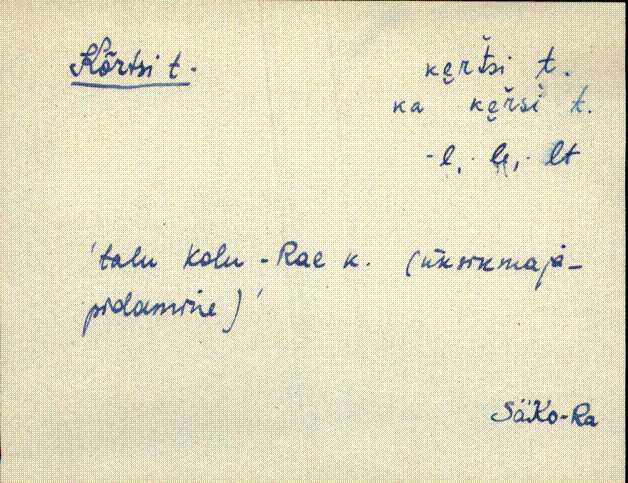 Kõrtsi t.
kẹŕt́si t.
ka kẹŕśi t.
-l, -le, -lt
'talu Kolu-Rae k. (üksikmaja-
pidamine)'
SäKo-Ra